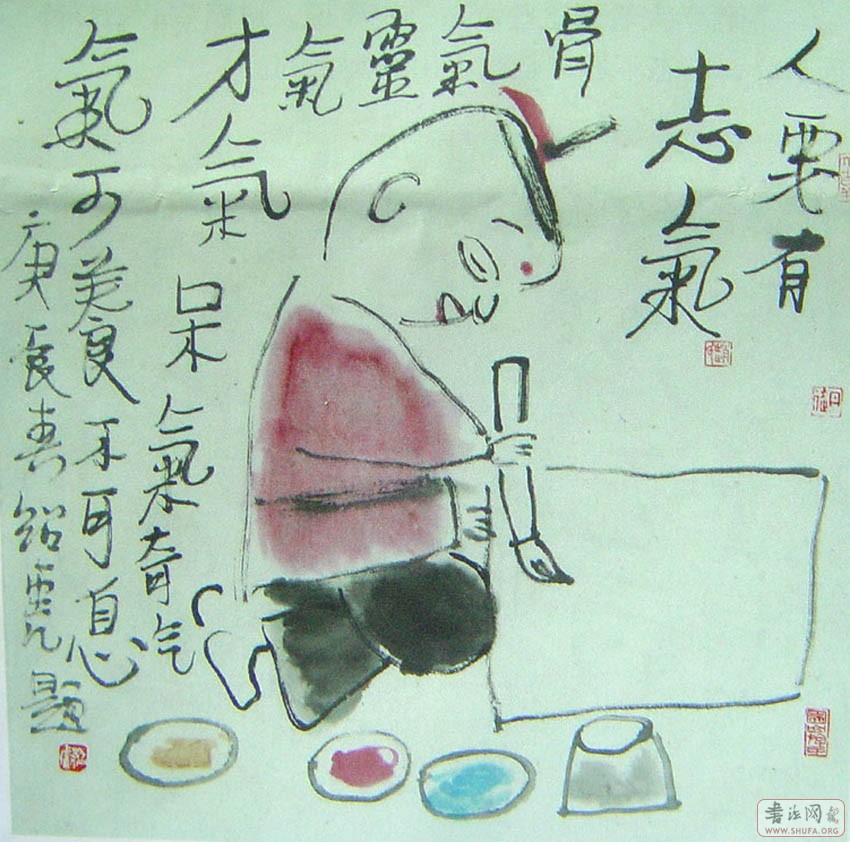 人要有
志氣
骨氣靈氣
才氣呆
氣奇气
氣可養不可息
庚辰春紹題
書法网
WWW.SHUFA.ORG